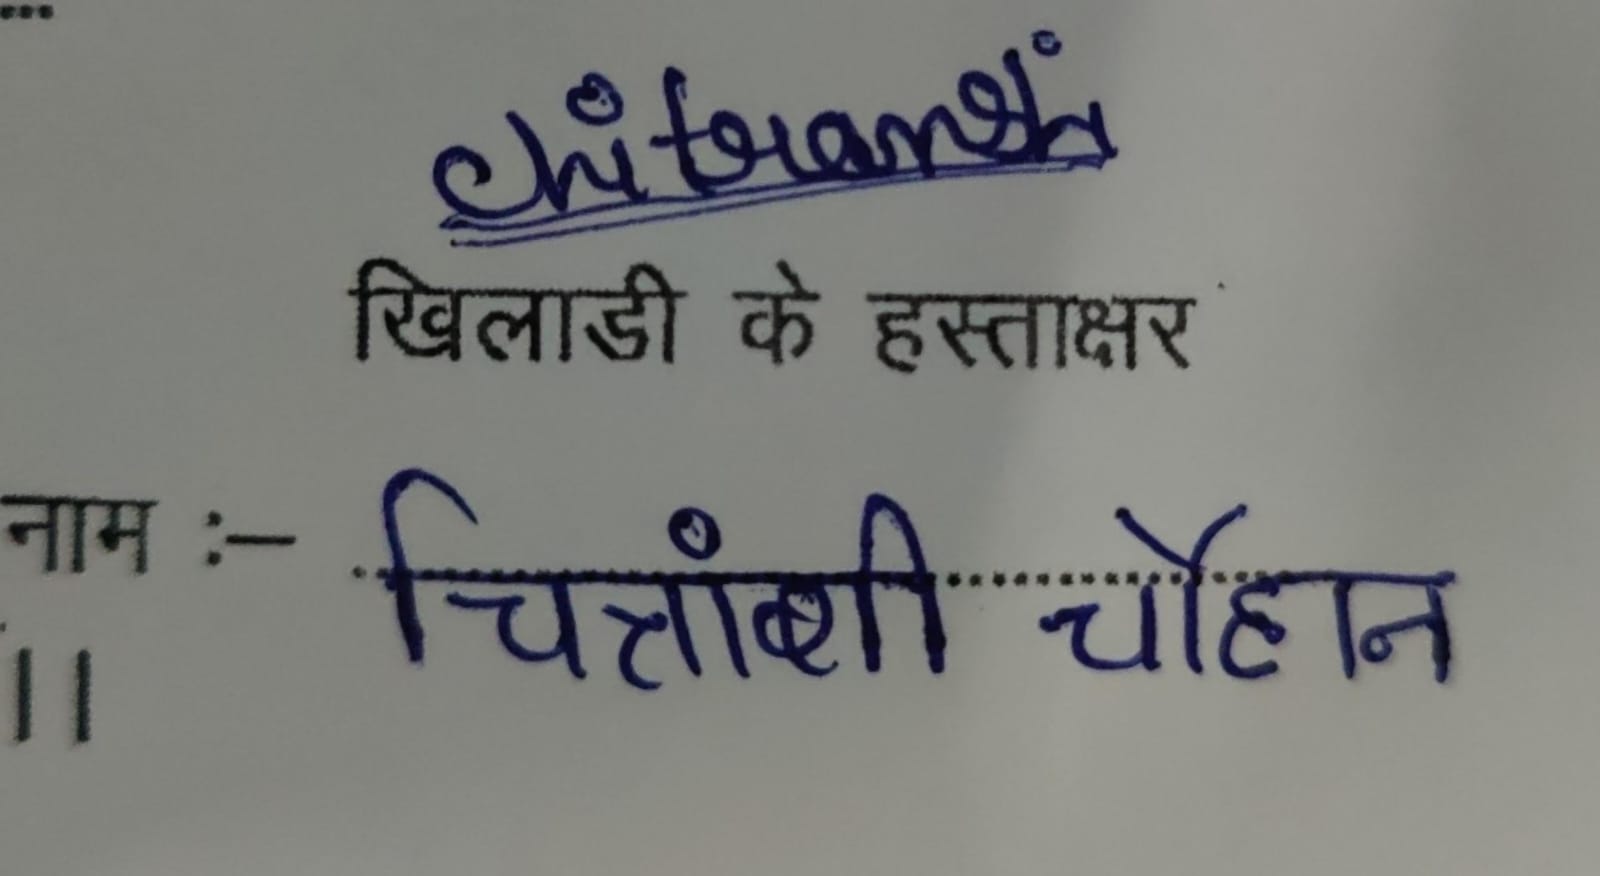 ...
chitranshi
खिलाडी के हस्ताक्षर
नाम :– चित्रांशी चौहान
।।